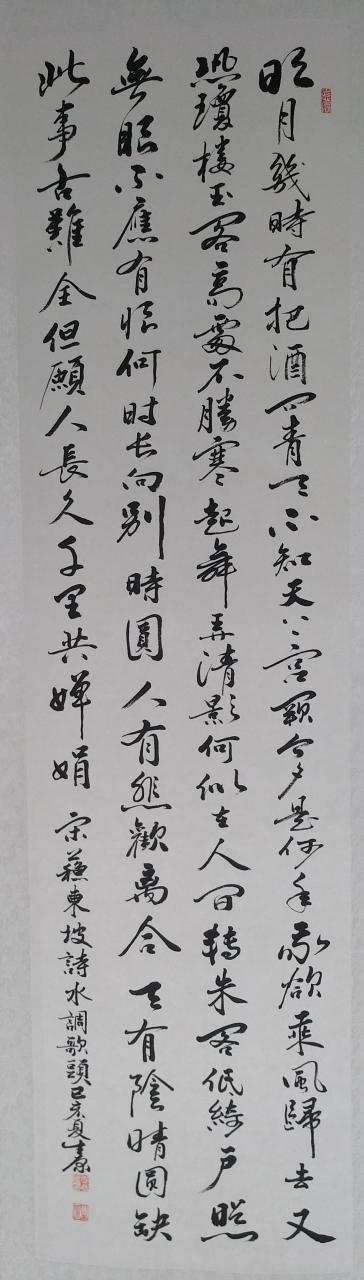 明月幾時有把酒問青天不知天上宮闕今夕是何年我欲乘風歸去又
恐瓊樓玉宇高處不勝寒起舞弄清影何似在人間轉朱閣低綺戶照
無眠不應有恨何时长向別時圓人有悲歡離合月有陰晴圓缺
此事古難全但願人長久千里共嬋娟
宋蘇東坡詩水調歌頭己亥夏